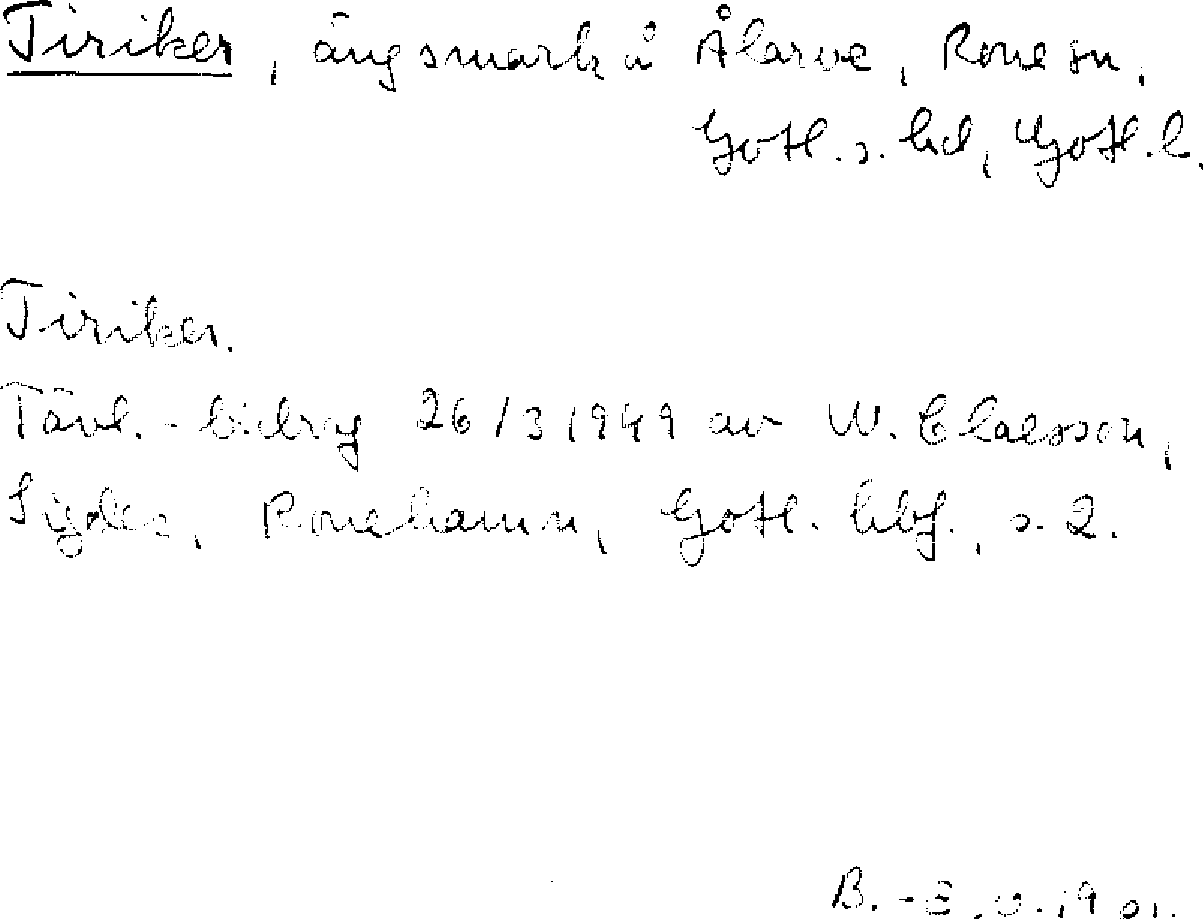 Tiriker, ängsmark å Ålarve, Rone sn,
Gotl. s. hd, Gotl. l.
Tiriker.
Tävl.-bidrag 26/3 1949 av W. Claesson,
Sigdes, Ronehamn, Gotl. hbf., s. 2.
B.-E.